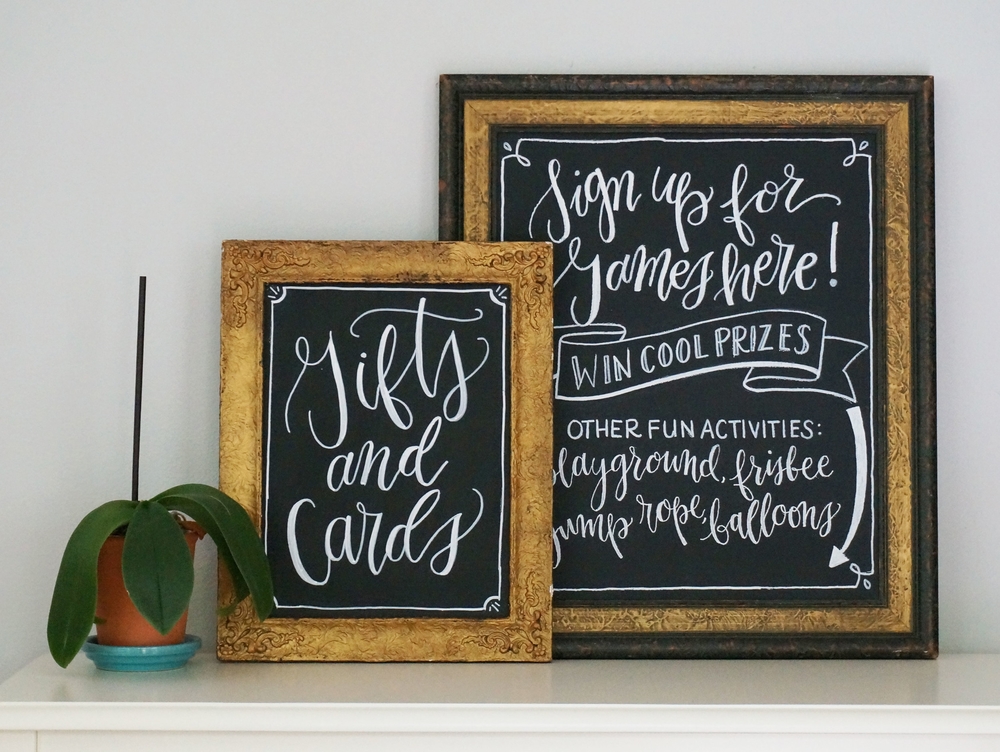 Gifts
and
Cards
Sign up for
Games here!
WIN COOL PRIZES
OTHER FUN ACTIVITIES:
playground, frisbee
jump rope, balloons